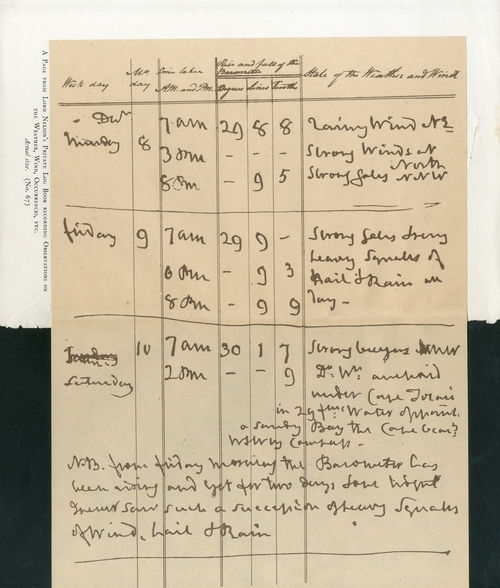 A Page from Lord Nelson's Private Log Book recording Observations on
the Weather, Wind, Occurrences, etc.
Actual size. (No. 67)
Rise and fall of the
Week day Mo. Time taken Barometer State of the Weather and Wind
day A.M. and P.M. Degrees Lines Tenths
Decr
Munday 8 7 am 29 8 8 rainy Wind NE
3 pm - - - Strong Winds at
North
8 Pm - 9 5 Strong Gales NNW
friday 9 7 am 29 9 - Strong Gales & very
heavy Squalls of
6 Pm - 9 3 Hail & Rain all
8 Pm - 9 9 Day -
10 7 am 30 1 7 Strong breezes NNW
Saturday 2 Pm - - 9 Do. Wr. anchored
under Cape
in 29 fms Water opposite
a sandy Bay the Cape bears
by Compass -
NB. from friday morning the Barometer has
been rising and yet for two days some
I never saw such a succession of heavy Squalls
of Wind, hail & Rain